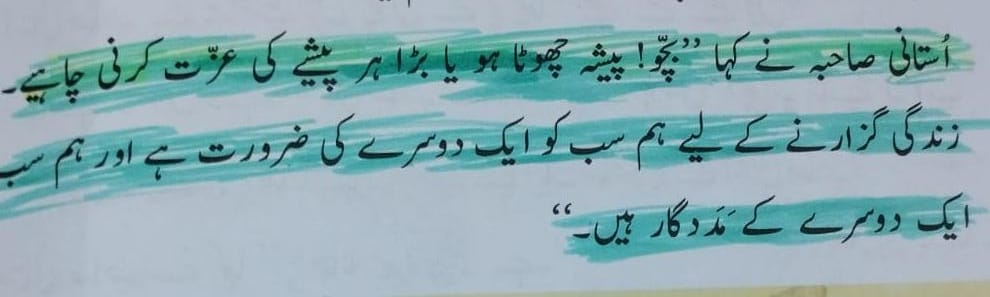 اُستانی صاحبہ نے کہا ”بچّو! پیشہ چھوٹا ہو یا بڑا ہر پیشے کی عزّت کرنی چاہیے۔
زندگی گزارنے کے لیے ہم سب کو ایک دوسرے کی ضرورت ہے اور ہم سب
ایک دوسرے کے مَدَدگار ہیں۔“